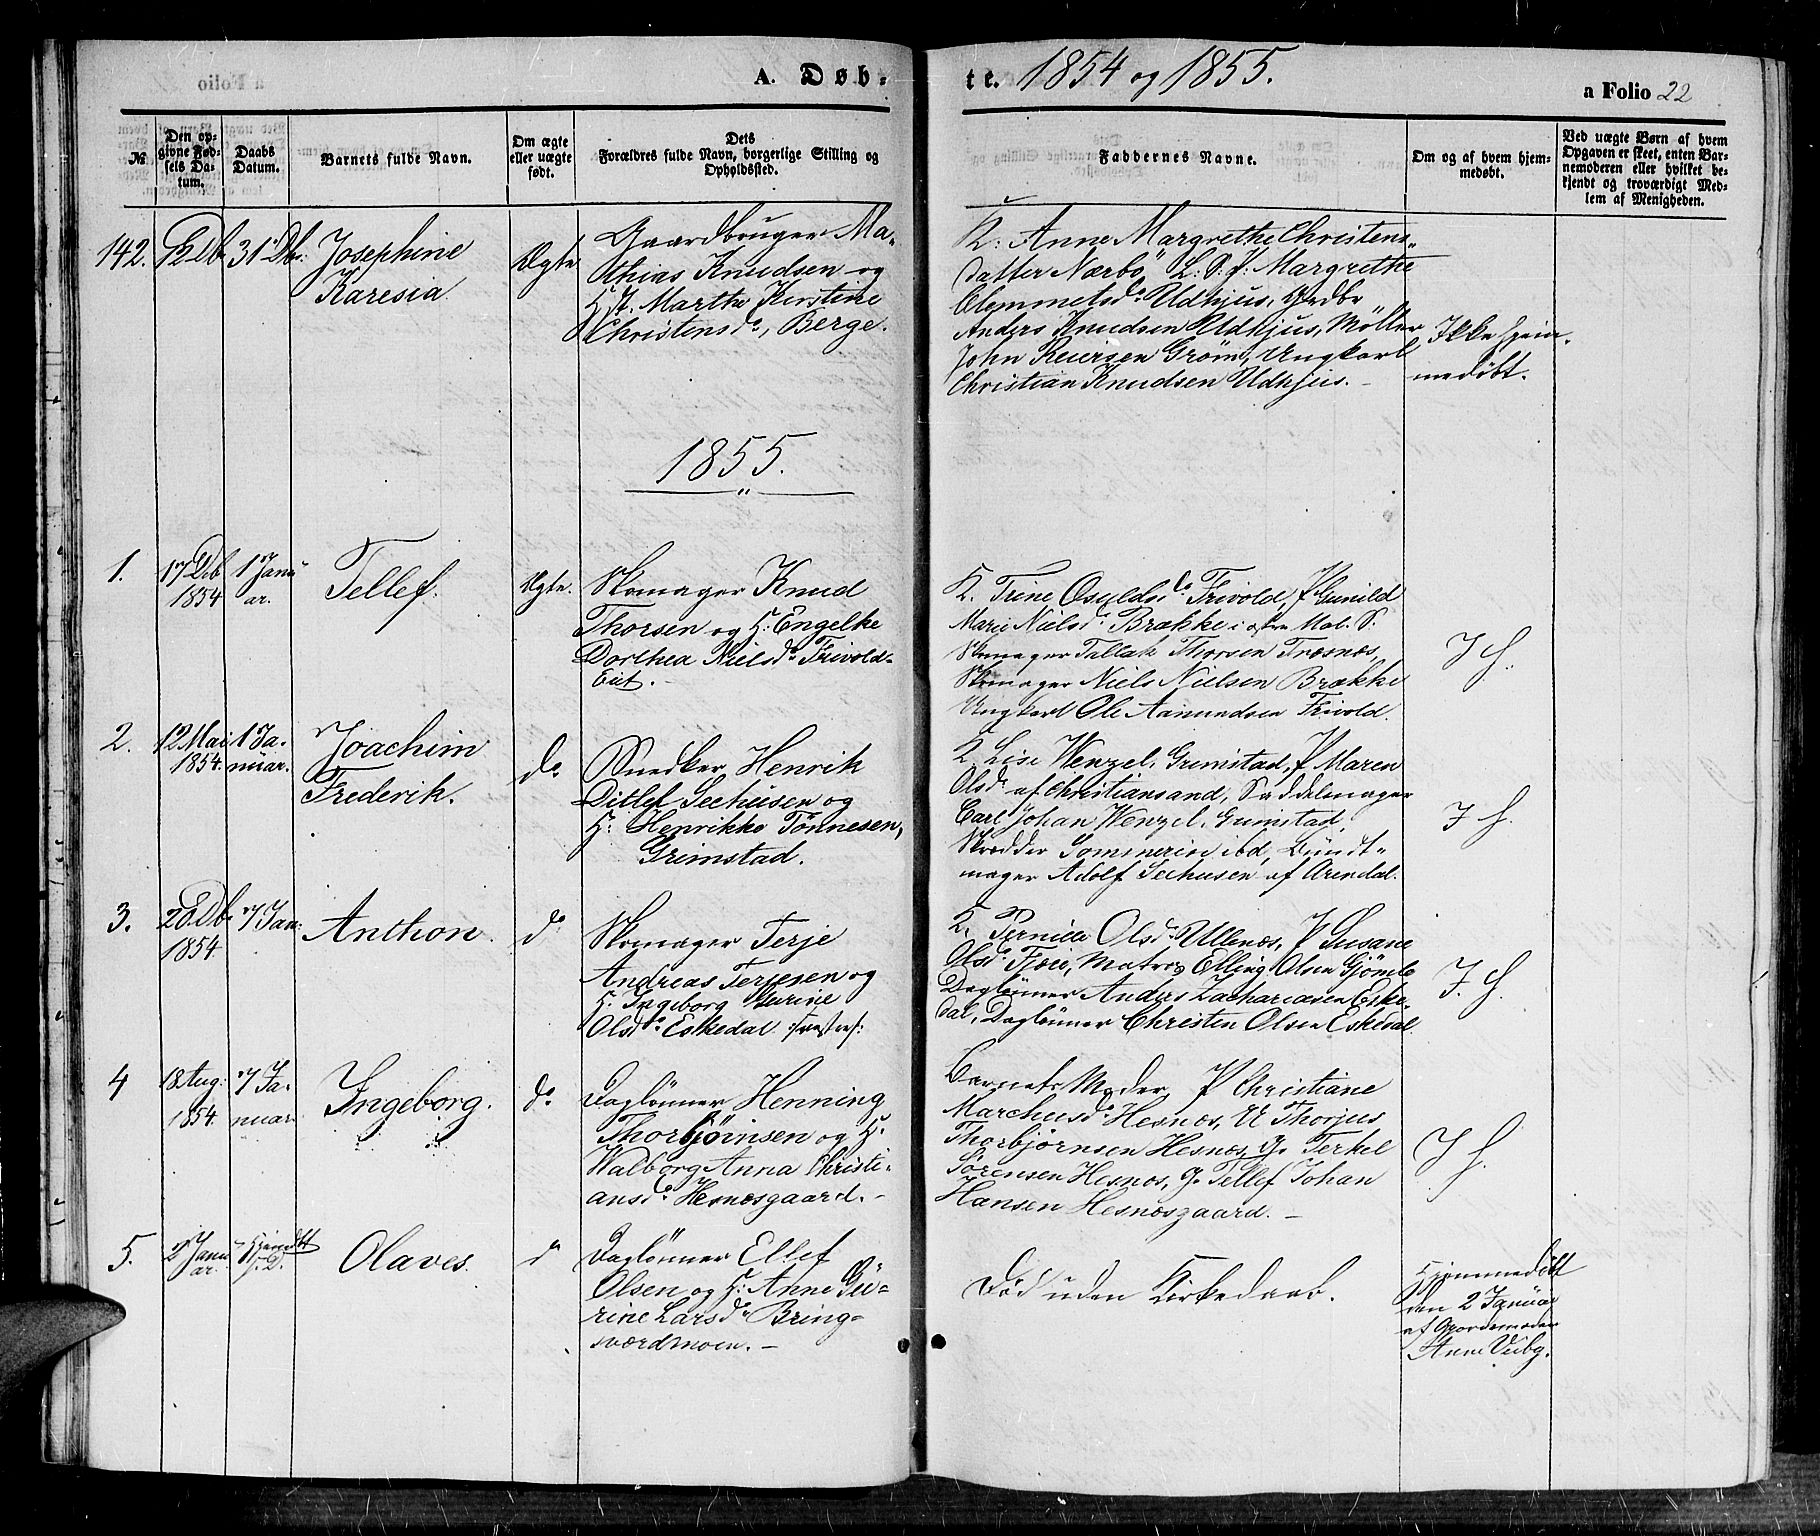 A. Døb-
te. 1854 og 1855.
a Folio 22
№
Den op-
givne Fød-
sels Da-
tum.
Daabs
Datum.
Barnets fulde Navn.
Om ægte
eller uægte
født.
Dets
Forældres fulde Navn, borgerlige Stilling og
Opholdssted.
Faddernes Navne.
Om og af hvem hjem-
medøbt.
Ved uægte Børn af hvem
Opgaven er skeet, enten Bar-
nemoderen eller hvilket be-
kjendt og troværdigt Med-
lem af Menigheden.
142.
31 Dbr:
Josephine
Karesia
Ægte
Gaardbruger Ma-
thias Knudsen og
H. Marthe Kirstine
Christensd., Berge.
K: Anne Margrethe Christens-
datter Nærbö, L. S. J. Margrethe
Clemmetsd. Udhjus, Grdbr
Anders Knudsen Udhjus, Møller
John Reiersen Grøm, Ungkarl
Christian Knudsen Udhjus. -
Ikke hjem-
medøbt.
1855.
1.
17 Db
1854
1 Janu
ar.
Tellef.
Ægte.
Skomager Knud
Thorsen og H: Engelke
Dorthea Nielsd. Frivold-
Eiet. -
K. Trine Osuldsd. Frivold, P Gunild
Marie Nielsd. Brække i østre Mol. S.
Skomager Tallak Thorsen Træsnæs,
Skomager Niels Nielsen Brække
Ungkarl Ole Aamundsen Frivold.
I H.
2.
12 Mai
1854.
1 Ja-
nuar.
Joachim
Frederik.
do
Snedker Henrik
Ditlef Seehusen og
H: Henrikke Tönnesen,
Grimstad.
K. Lise Wenzel, Grimstad, P Maren
Olsd. af Christiansand, Saddelmager
Carl Johan Wenzel, Grimstad,
Skrædder ibd, Bundt-
mager Adolf Seehusen af Arendal.
I H.
3.
28 Db.
1854
7 Jan:
Anthon.
do
Skomager Terje
Andreas Terjesen og
H. Ingeborg Marine
Olsd. Eskedal
K. Pernille Olsd. Ullenæs, P Susane
Olsd. Fjære, Matros Elling Olsen Gjömle
Daglönner Anders Zachariasen Eske-
dal, Daglönner Christen Olsen Eskedal.
I. H.
4
18 Aug:
1854.
7 Ja-
nuar.
Ingeborg.
do
Daglönner Henning
Thorbjörnsen og H:
Walborg Anna Christi-
ansd. Hesnæsgaard. -
Barnets Moder, P Christiane
Marchusd. Hesnæs, U Thorjus
Thorbjörnsen Hesnæs, G. Terkel
Sörensen Hesnæs, G. Tellef Johan
Hansen Hesnæsgaard. -
I H.
5.
2 Janu
ar.
Hjemdöbt
s. D.
Olaves.
d
Daglönner Ellef
Olsen og H: Anne Gu-
rine Larsd. Bring-
sværdmoen. -
Död uden Kirkedaab.
Hjemmedöbt
den 2 Januar
af Gjordemoder
Anne Viibg.